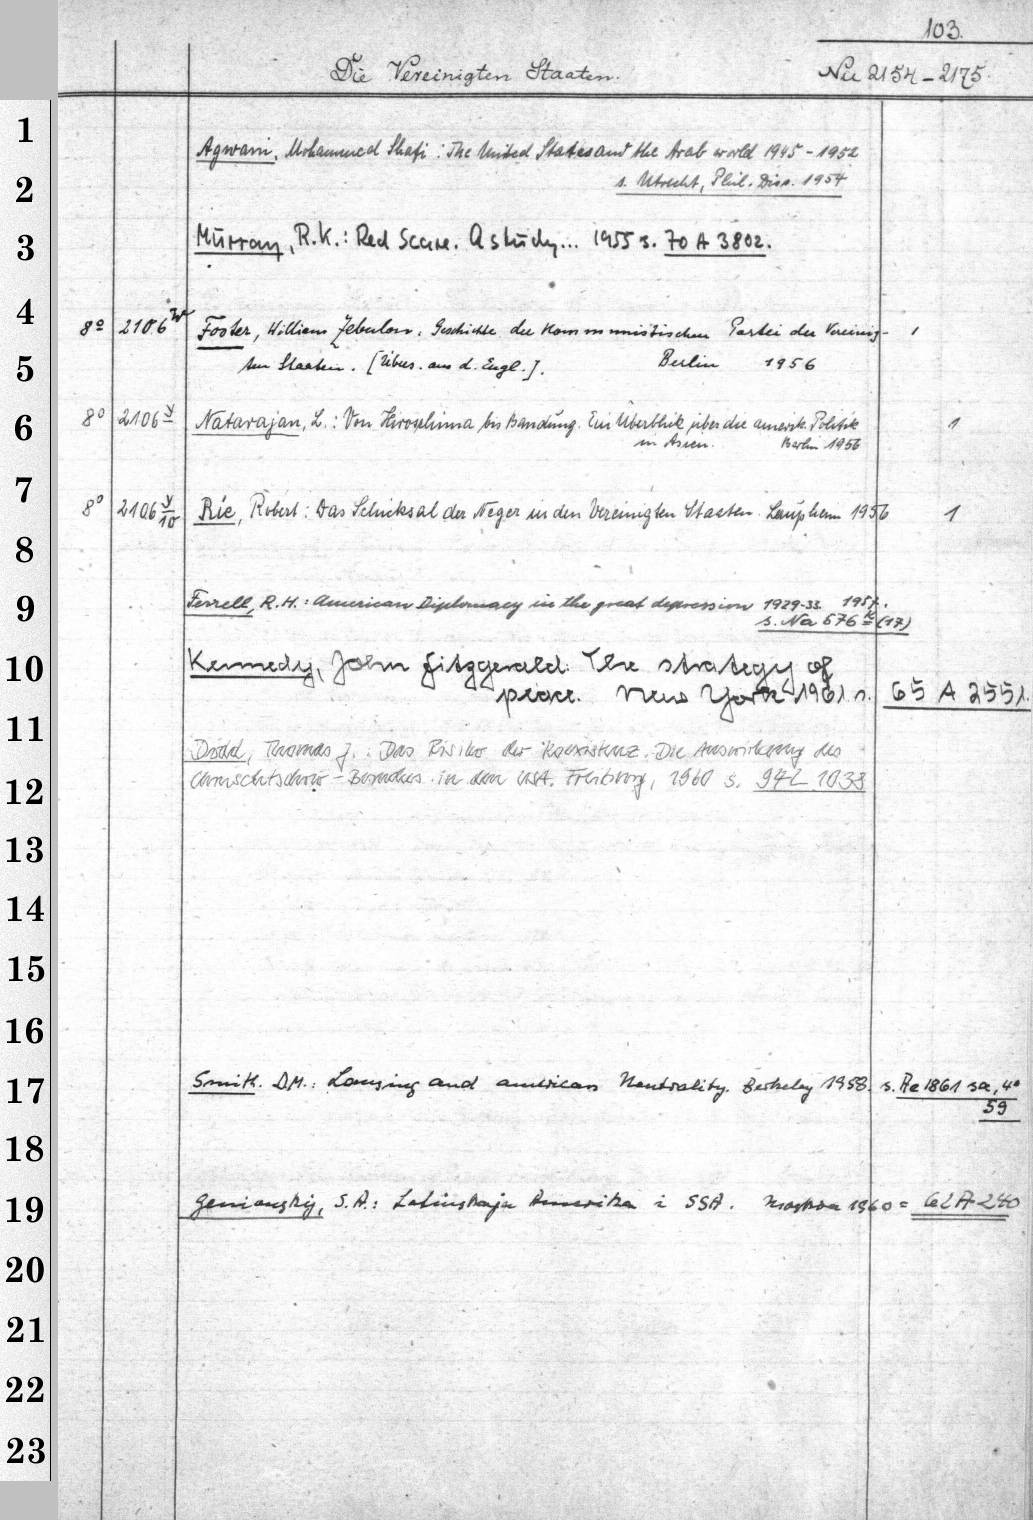 103.
Die Vereinigten Staaten. 2154-2175.
1
Agwani, Mohammed Shafi: The United States and the Arab world 1945-1952
2
s. Utrecht, Phil. Diss. 1954
3
Murray, R.K.: Red Scare. A study... 1955 s. 70 A 3802.
4
8º 2106 w Foster, William Zebulon: Geschichte der Kommunistischen Partei der Vereinig- 1
5
ten Staaten. [Übers. aus d. Engl.]. Berlin 1956
6
8º 2106 y Natarajan, L.: Von Hiroshima bis Bandung. Ein Überblik über die amerik. Politik 1
in Asien. Berlin 1956
7
8º 2106 y/10 Rie, Robert: Das Schicksal der Neger in den Vereinigten Staaten. Laupheim 1956 1
8
9
Ferrell, R.H.: American Diplomacy in the great depression 1929-33. 1957.
s. Na 576 k (17)
10
Kennedy, John Fitzgerald: The strategy of
peace. New York 1961 s. 65 A 2551.
11
Dodd, Thomas J.: Das Risiko der Koexistenz. Die Auswirkung des
12
Chruschtschow-Besuches in den USA. Freiburg, 1960 s. 94 L 1038
13
14
15
16
17
Smith. D.M.: Lansing and american Neutrality. Berkeley 1958. s. Re 1861 sa, 4º
59
18
19
Gonionskij, S.A.: Latinskaja Amerika i SSA. Moskva 1960 = 62 A 240
20
21
22
23